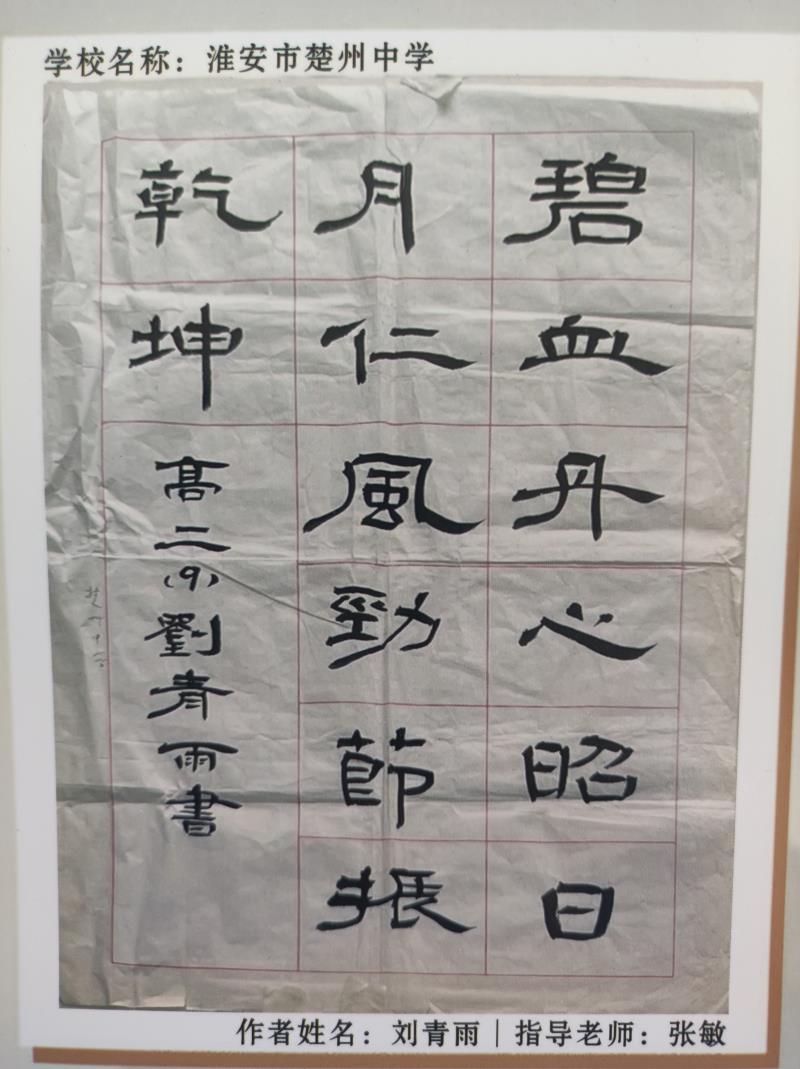 学校名称：淮安市楚州中学
碧血丹心昭日
月仁風勁節振
乾坤
高二(9)劉青雨書
楚州中学
作者姓名：刘青雨｜指导老师：张敏